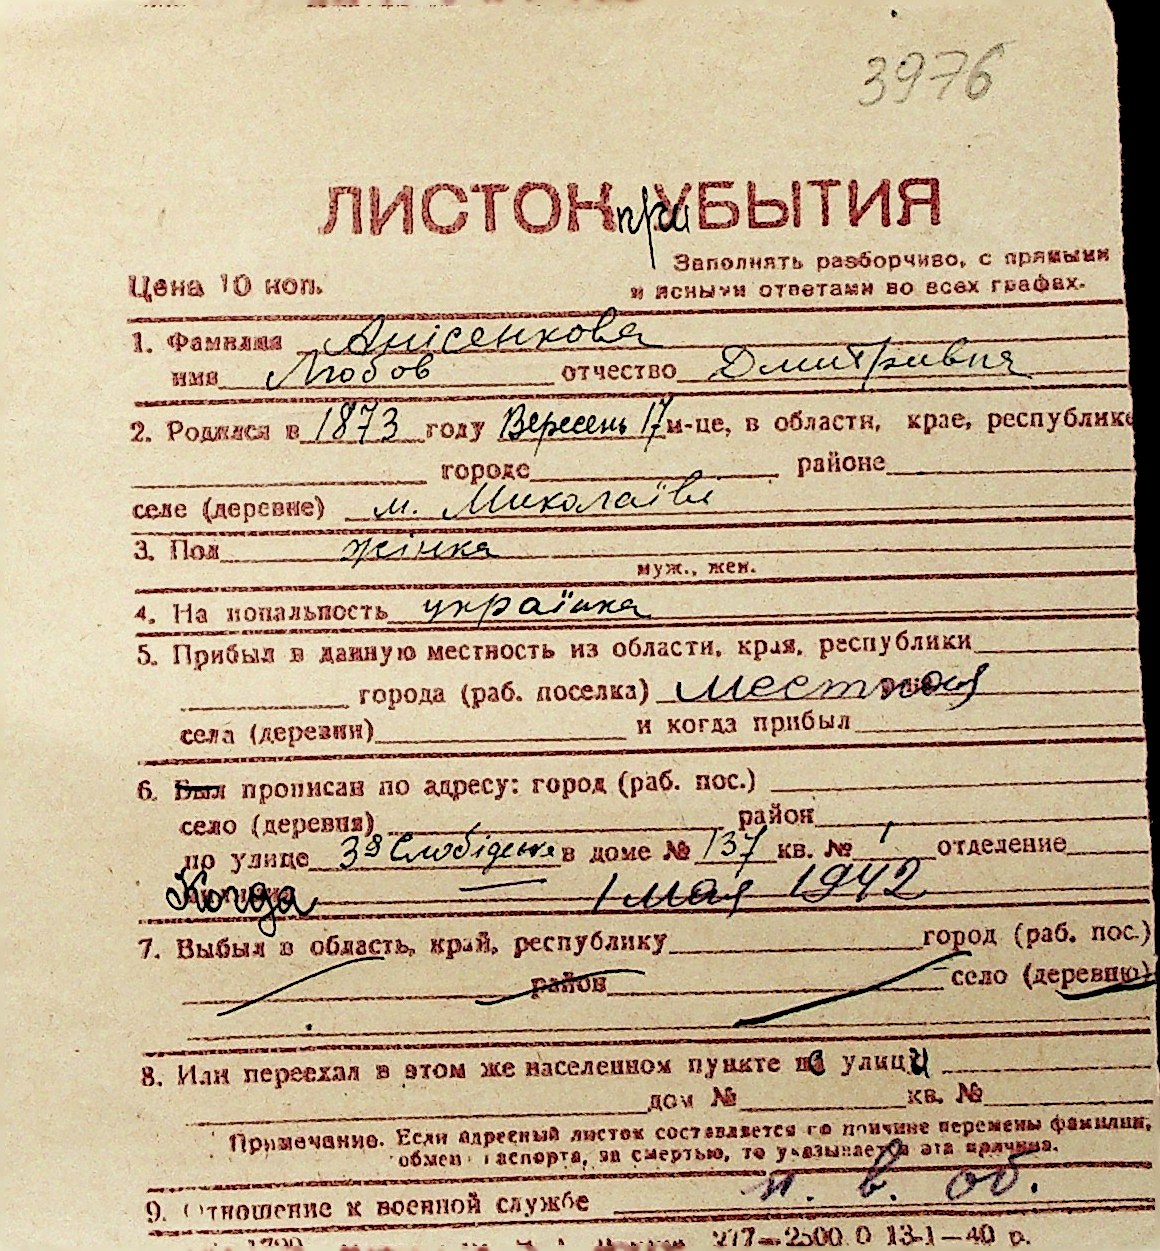 3976
ЛИСТОК при УБЫТИЯ
Заполнять разборчиво, с прямыми
Цена 10 коп.
и ясными ответами во всех графах.
1. Фамилия Анісенкова
имя Любов отчество Дмитривна
2. Родился в 1873 году Вересень 17 м-це, в области, крае, республике
городе районе
селе (деревне) м. Миколаїві
3. Пол жінка
муж., жен.
4. На иональность українка
5. Прибыл в данную местность из области, края, республики
города (раб. поселка) местная
села (деревни) и когда прибыл
6. Был прописан по адресу: город (раб. пос.)
село (деревня) район
по улице 3я Слобідская в доме № 137 кв. № 1 отделение
Когда 1 мая 1942
7. Выбыл в область, край, республику город (раб. пос.)
район село (деревню)
8. Или переехал в этом же населенном пункте с улицы
дом № кв. №
Примечание. Если адресный листок составляется по причине перемены фамилии,
обмен паспорта, за смертью, то указывается эта причина.
9. Отношение к военной службе н. в. об.
277—2500 0 13-1—40 р.